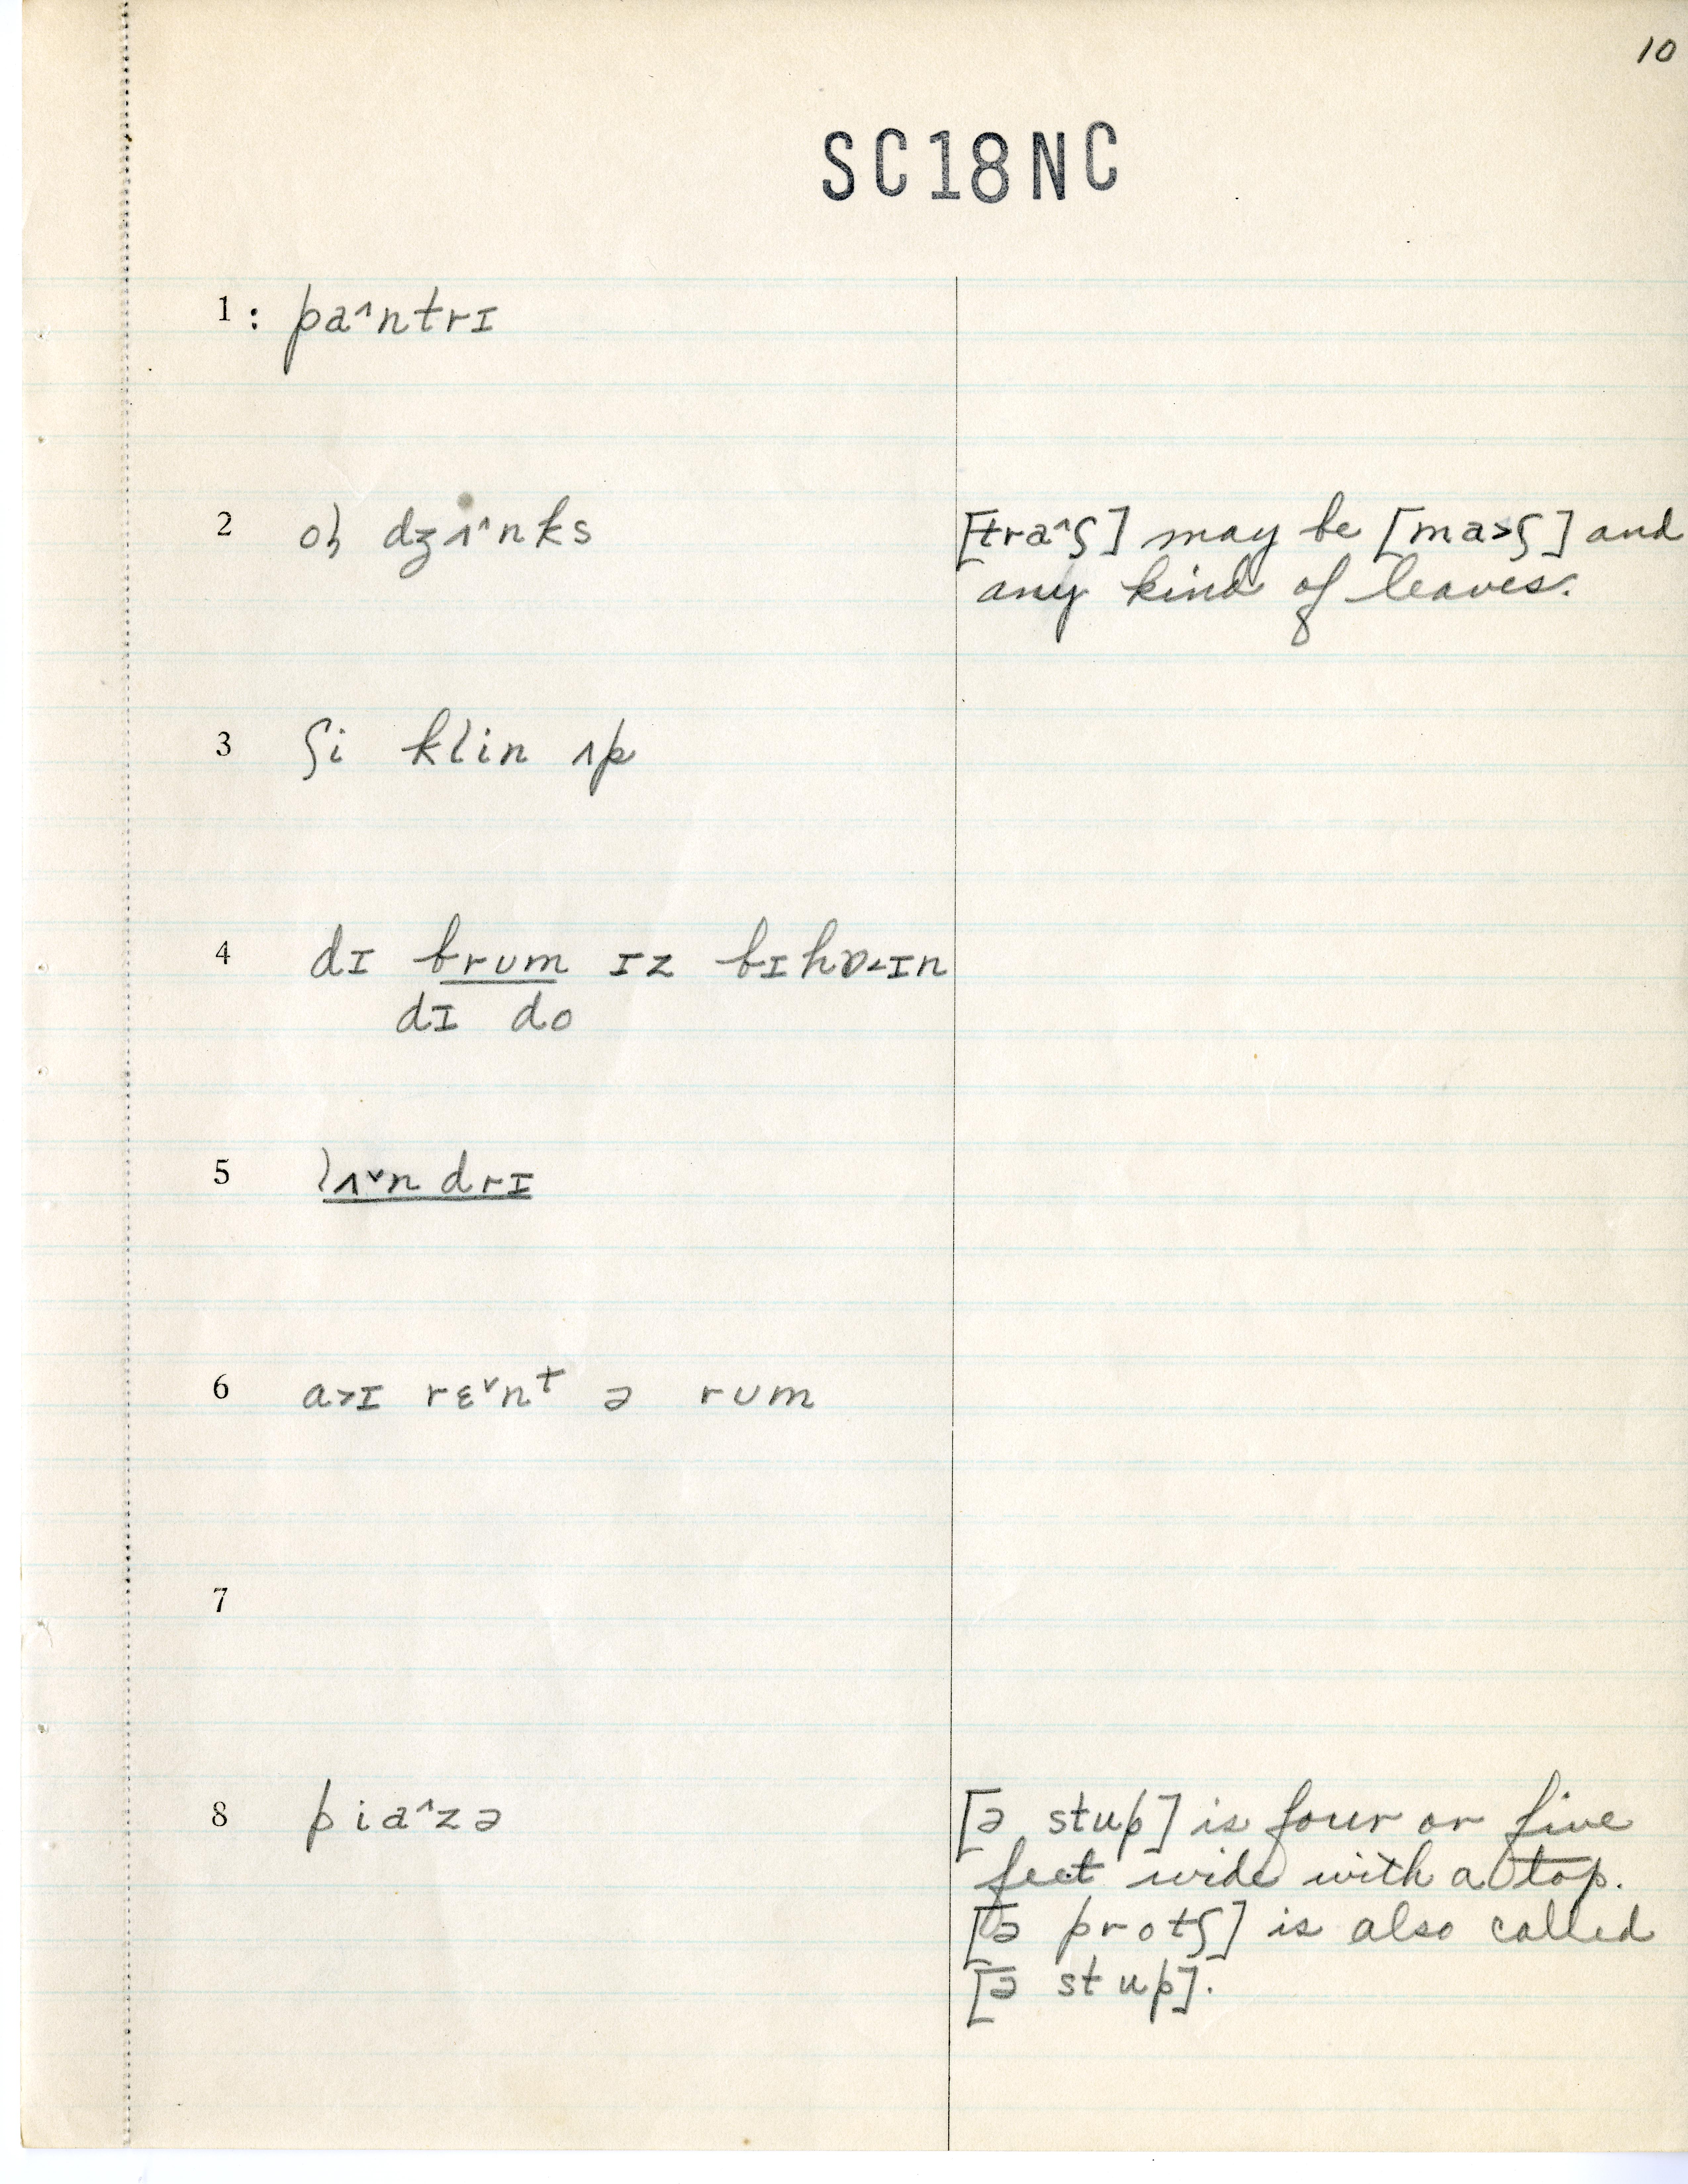 10
SC18NC
1 : pa^ntrɪ
2 ol dʒʌ^nks
[tra^ʃ] may be [ma>ʃ] and
any kind of leaves.
3 ʃi klin ʌp
4 dɪ brum ɪz bɪhɒ<ɪn
dɪ do
5 lʌˇndrɪ
6 a>ɪ rɛˇnᵗ ə rum
7
8 pia^zə
[ə stup] is four or five
feet wide with a top.
[ə protʃ] is also called
[ə stup].